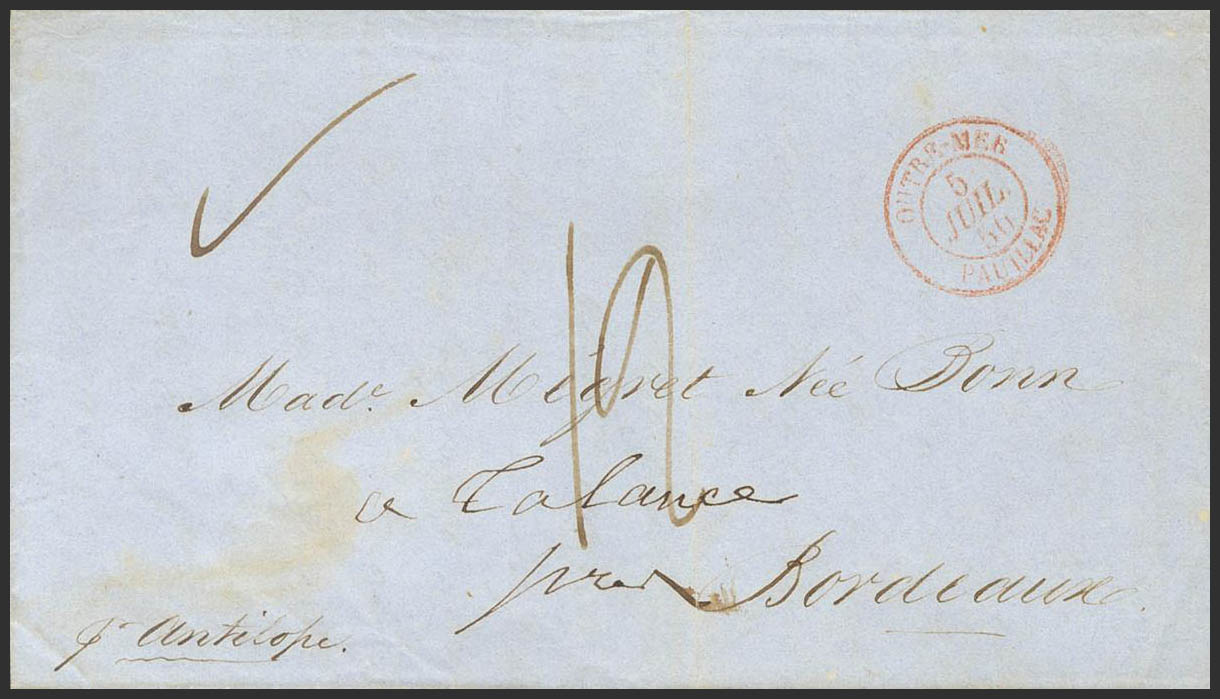 OUTRE-MER
5
JUIL.
50
PAUILLAC
12
Made. Migret Née Bonn
a Talance
près Bordeaux.
pr Antilope.